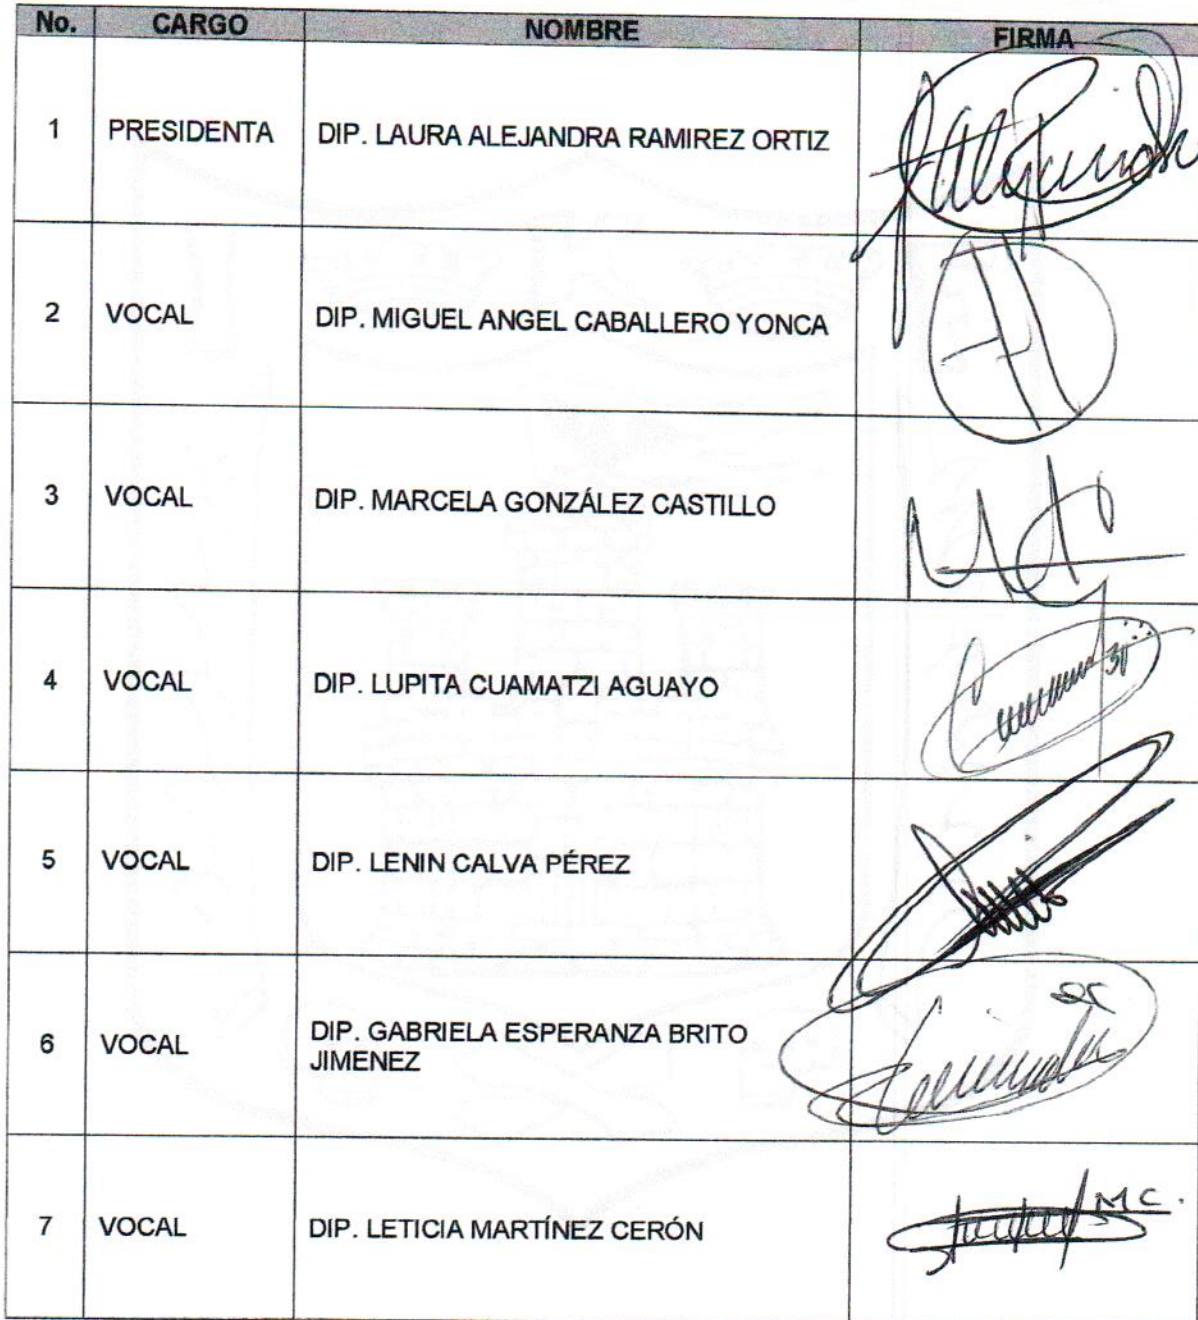 No. CARGO NOMBRE FIRMA
1 PRESIDENTA DIP. LAURA ALEJANDRA RAMIREZ ORTIZ
2 VOCAL DIP. MIGUEL ANGEL CABALLERO YONCA
3 VOCAL DIP. MARCELA GONZÁLEZ CASTILLO
4 VOCAL DIP. LUPITA CUAMATZI AGUAYO
5 VOCAL DIP. LENIN CALVA PÉREZ
6 VOCAL DIP. GABRIELA ESPERANZA BRITO
JIMENEZ
7 VOCAL DIP. LETICIA MARTÍNEZ CERÓN MC.